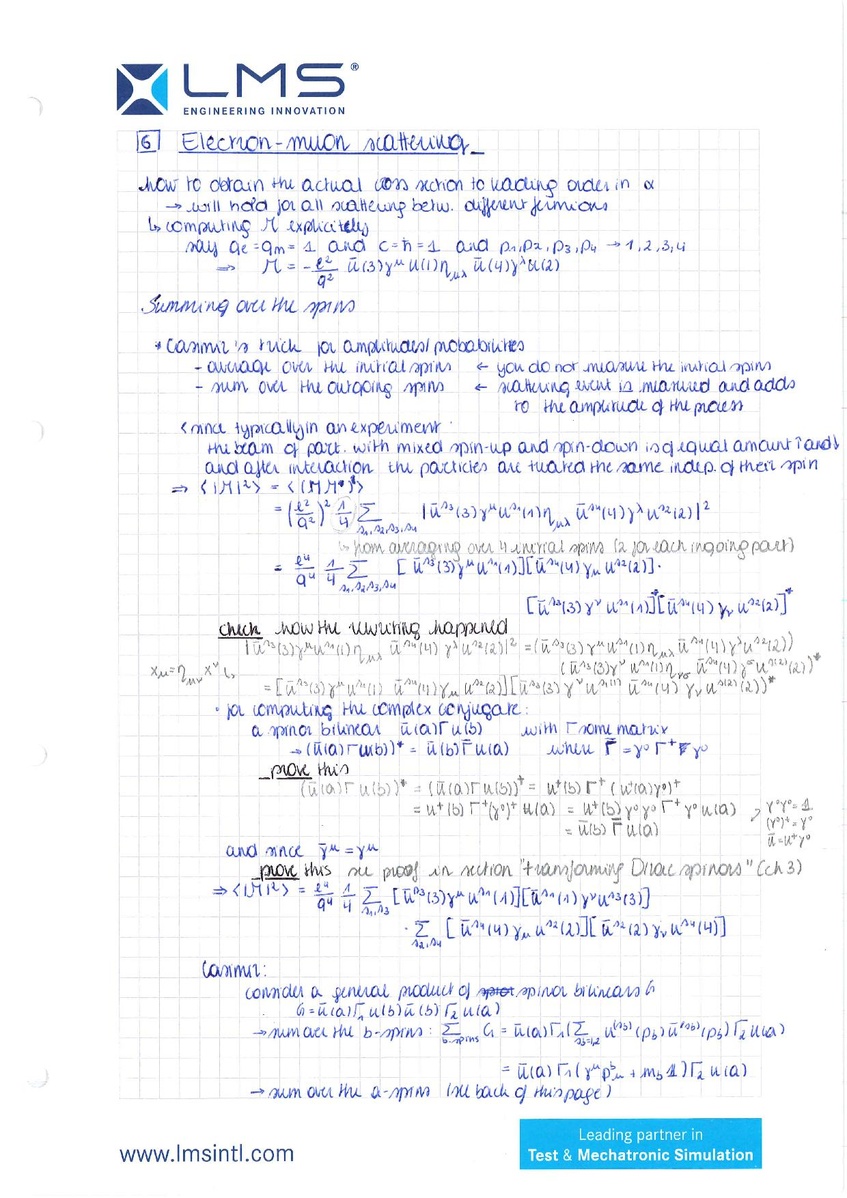 LMS®
ENGINEERING INNOVATION
6 Electron-muon scattering
how to obtain the actual cross section to leading order in α
→ will hold for all scattering betw. different fermions
↳ computing M explicitely
say qe = qm = 1 and c = ħ = 1 and p1, p2, p3, p4 → 1, 2, 3, 4
⇒ M = -e²/q² ū(3)γ^μ u(1)η_μλ ū(4)γ^λ u(2)
Summing over the spins
* Casimir's trick for amplitudes/probabilities
- average over the initial spins ← you do not measure the initial spins
- sum over the outgoing spins ← scattering event is measured and adds
to the amplitude of the process
< since typically in an experiment
the beam of part. with mixed spin-up and spin-down is of equal amount ↑ and ↓
and after interaction the particles are treated the same indep. of their spin
⇒ ⟨|M|²⟩ = ⟨(MM*)⟩
= (e²/q²)² 1/4 Σ_{s1,s2,s3,s4} |ū^{s3}(3)γ^μ u^{s1}(1)η_μλ ū^{s4}(4)γ^λ u^{s2}(2)|²
↳ from averaging over 4 initial spins (2 for each ingoing part)
= e⁴/q⁴ 1/4 Σ_{s1,s2,s3,s4} [ū^{s3}(3)γ^μ u^{s1}(1)][ū^{s4}(4)γ_μ u^{s2}(2)] ·
[ū^{s3}(3)γ^ν u^{s1}(1)]*[ū^{s4}(4)γ_ν u^{s2}(2)]*
check how the rewriting happened
|ū^{s3}(3)γ^μ u^{s1}(1)η_μλ ū^{s4}(4)γ^λ u^{s2}(2)|² = (ū^{s3}(3)γ^μ u^{s1}(1)η_μλ ū^{s4}(4)γ^λ u^{s2}(2))
(ū^{s3}(3)γ^ν u^{s1}(1)η_νσ ū^{s4}(4)γ^σ u^{s(2)}(2))*
x_μ = η_μν x^ν ↳
= [ū^{s3}(3)γ^μ u^{s1}(1) ū^{s4}(4)γ_μ u^{s2}(2)][ū^{s3}(3)γ^ν u^{s(1)}(1) ū^{s4}(4)γ_ν u^{s(2)}(2))*
· for computing the complex conjugate:
a spinor bilinear ū(a)Γu(b) with Γ some matrix
→ (ū(a)Γu(b))* = ū(b)Γ̄u(a) when Γ̄ = γ⁰Γ⁺γ⁰
prove this
(ū(a)Γu(b))* = (ū(a)Γu(b))⁺ = u⁺(b)Γ⁺(u⁺(a)γ⁰)⁺
= u⁺(b)Γ⁺(γ⁰)⁺u(a) = u⁺(b)γ⁰γ⁰Γ⁺γ⁰u(a)
= ū(b)Γ̄u(a)
γ⁰γ⁰ = 𝟙
(γ⁰)⁺ = γ⁰
ū = u⁺γ⁰
and since γ̄^μ = γ^μ
prove this see proof in section "transforming Dirac spinors" (ch 3)
⇒ ⟨|M|²⟩ = e⁴/q⁴ 1/4 Σ_{s1,s3} [ū^{s3}(3)γ^μ u^{s1}(1)][ū^{s1}(1)γ^ν u^{s3}(3)]
· Σ_{s2,s4} [ū^{s4}(4)γ_μ u^{s2}(2)][ū^{s2}(2)γ_ν u^{s4}(4)]
Casimir:
consider a general product of spinor bilinears G
G = ū(a)Γ₁u(b)ū(b)Γ₂u(a)
→ sum over the b-spins: Σ_{b-spins} G = ū(a)Γ₁(Σ_{s_b=1,2} u^{(s_b)}(p_b)ū^{(s_b)}(p_b))Γ₂u(a)
= ū(a)Γ₁(γ^μ p^b_μ + m_b 𝟙)Γ₂u(a)
→ sum over the a-spins (see back of this page)
www.lmsintl.com
Leading partner in
Test & Mechatronic Simulation